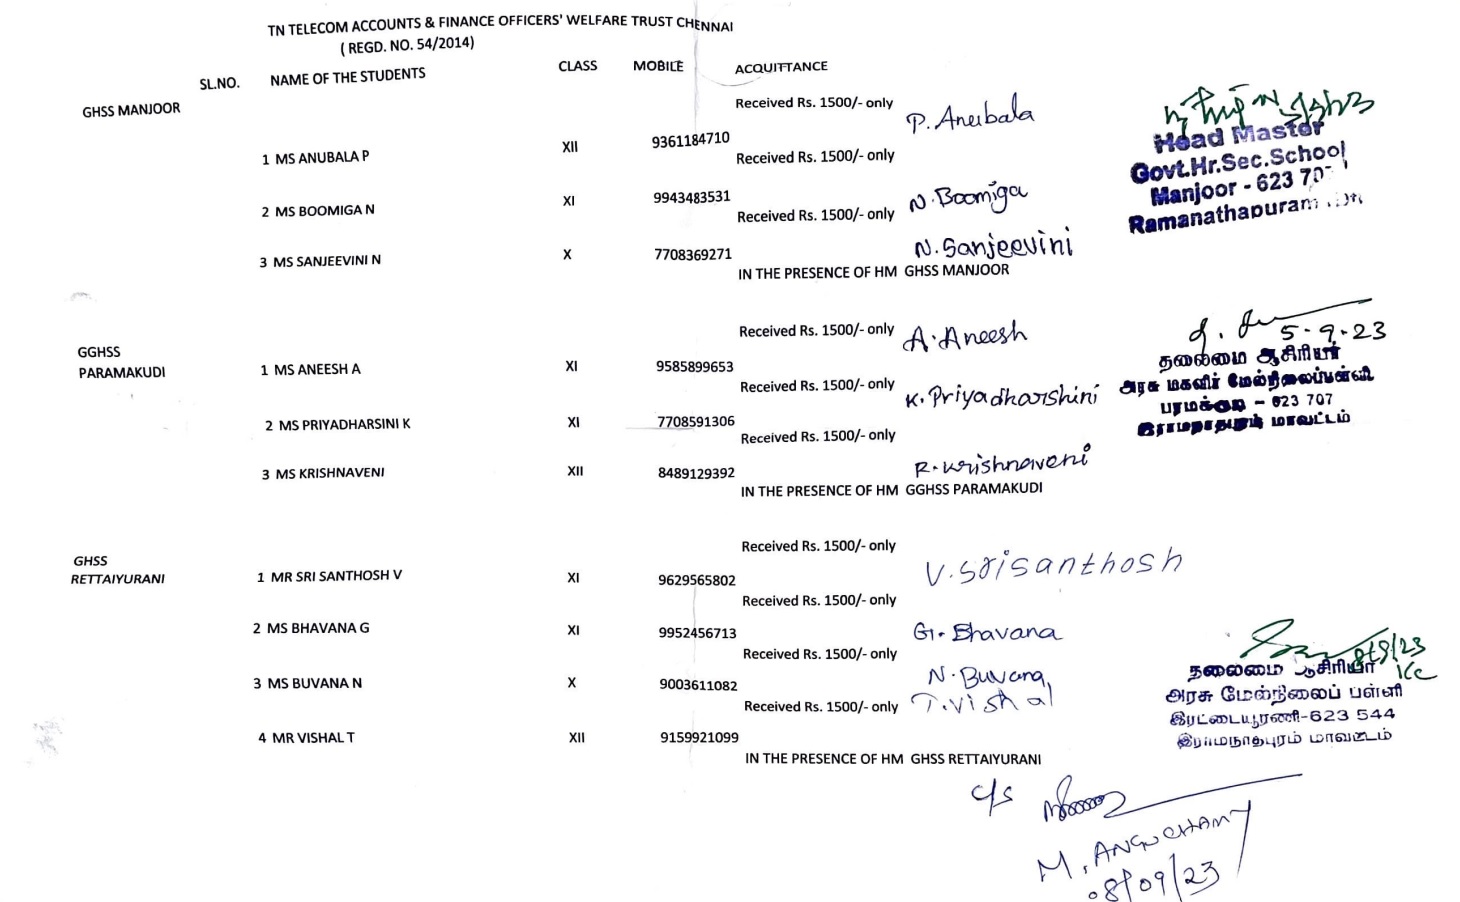 TN TELECOM ACCOUNTS & FINANCE OFFICERS' WELFARE TRUST CHENNAI
( REGD. NO. 54/2014)
SL.NO. NAME OF THE STUDENTS CLASS MOBILE ACQUITTANCE
GHSS MANJOOR
Received Rs. 1500/- only P. Anubala
1 MS ANUBALA P XII 9361184710
Received Rs. 1500/- only
2 MS BOOMIGA N XI 9943483531
Received Rs. 1500/- only N. Boomiga
3 MS SANJEEVINI N X 7708369271 N. Sanjeevini
IN THE PRESENCE OF HM GHSS MANJOOR
Head Master
Govt.Hr.Sec.School
Manjoor - 623 70
Ramanathapuram
GGHSS
PARAMAKUDI
Received Rs. 1500/- only A. Aneesh
1 MS ANEESH A XI 9585899653
Received Rs. 1500/- only K. Priyadharshini
2 MS PRIYADHARSINI K XI 7708591306
Received Rs. 1500/- only
3 MS KRISHNAVENI XII 8489129392 R. Krishnaveni
IN THE PRESENCE OF HM GGHSS PARAMAKUDI
5-9-23
தலைமை ஆசிரியர்
அரசு மகளிர் மேல்நிலைப்பள்ளி
பரமக்குடி - 623 707
இராமநாதபுரம் மாவட்டம்
GHSS
RETTAIYURANI
Received Rs. 1500/- only
1 MR SRI SANTHOSH V XI 9629565802 V. Srisanthosh
Received Rs. 1500/- only
2 MS BHAVANA G XI 9952456713 G. Bhavana
Received Rs. 1500/- only
3 MS BUVANA N X 9003611082 N. Buvana
Received Rs. 1500/- only T. Vishal
4 MR VISHAL T XII 9159921099
IN THE PRESENCE OF HM GHSS RETTAIYURANI
8/9/23
தலைமை ஆசிரியர்
அரசு மேல்நிலைப் பள்ளி
இரட்டையூரணி-623 544
இராமநாதபுரம் மாவட்டம்
C/S
M. ANGUCHAMY
08/09/23